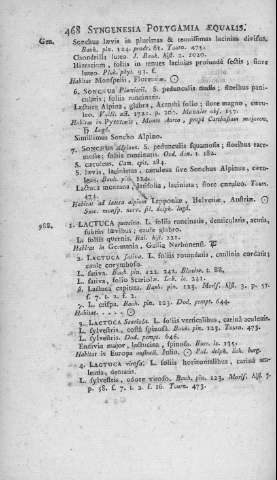 468 SYNGENESIA POLYGAMIA ÆQUALIS.
Gen. Sonchus lævis in plurimas & tenuissimas lacinias divisus.
Bauh. pin. 124. prodr. 61. Tourn. 475.
Chondrilla lutea. J. Bauh. hist. 2. 1020.
Hieracium, foliis in tenues lacinias profunde sectis; flore
luteo. Pluk. phyt. 93. f.
Habitat Monspelii, Florentiæ. ☉
6. SONCHUS Plumieri. S. pedunculis nudis; floribus pani-
culatis; foliis runcinatis.
Lactuca Alpina, glabra, Acanthi folio; flore magno, caru-
leo.
Habitat in Pyrenæis,
Simillimus Soncho Alpino.
7. SONCHUS Alpinus. S. pedunculis squamosis; floribus race-
mosis; foliis runcinatis. Oed. dan. t. 182.
S. cæruleus. Cam. epit. 281.
S. lævis, laciniatus, cæruleus sive Sonchus Alpinus, cæru-
leus. Bauh. pin. 124.
Lactuca montana, latifolia, laciniata; flore cæruleo. Tourn.
474.
Habitat ad latera alpium Lapponiæ, Helvetiæ, Austriæ.
988. 1. LACTUCA perennis. L. foliis runcinatis, denticulatis, acutis,
subtus lævibus; caule glabro.
L. foliis quernis. Raj. hist. 221.
Habitat in Germania, Gallia Narbonensi.
2. LACTUCA sativa. L. foliis rotundatis, caulinis cordatis;
caule corymboso.
L. sativa. Bauh. pin. 122. 242. Blackw. t. 88.
L. sativa, folio Scariolæ. Lob. ic. 241.
β Lactuca capitata. Bauh. pin. 123. Moris. hist. 3. p. 57.
f. 7. t. 2. f. 2.
γ L. crispa. Bauh. pin. 123. Dod. pempt. 644.
Habitat. . . . . ☉
3. LACTUCA Scariola. L. foliis verticalibus, carina aculeatis.
L. sylvestris, costa spinosa. Bauh. pin. 123. Tourn. 473.
L. sylvestris. Dod. pempt. 646.
Endivia major, lactucina, spinosa.
Habitat in Europa australi. Julio. ☉
4. LACTUCA virosa. L. foliis horizontalibus, carina acu-
leatis, dentatis.
L. sylvestris, odore viroso. Bauh. pin. 123. Moris. hist. 3.
p. 58. f. 7. t. 2. f. 16. Tourn. 473.